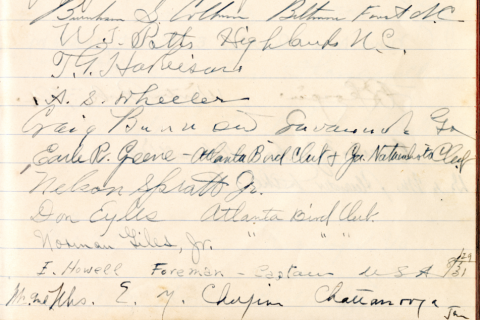 Burnham S. Colburn Biltmore Forest N.C.
W. J. Potts Highlands N.C.
T. G. Harbison
A. S. Wheeler
Craig Savannah Ga
Earle R. Greene - Atlanta Bird Club & Ga. Naturalists Club
Nelson Spratt Jr.
Don Eyles Atlanta Bird Club
Norman Giles, Jr. " " "
I. Howell Foreman - Captain U S A
Mr. and Mrs. E. Y. Chapin Chattanooga